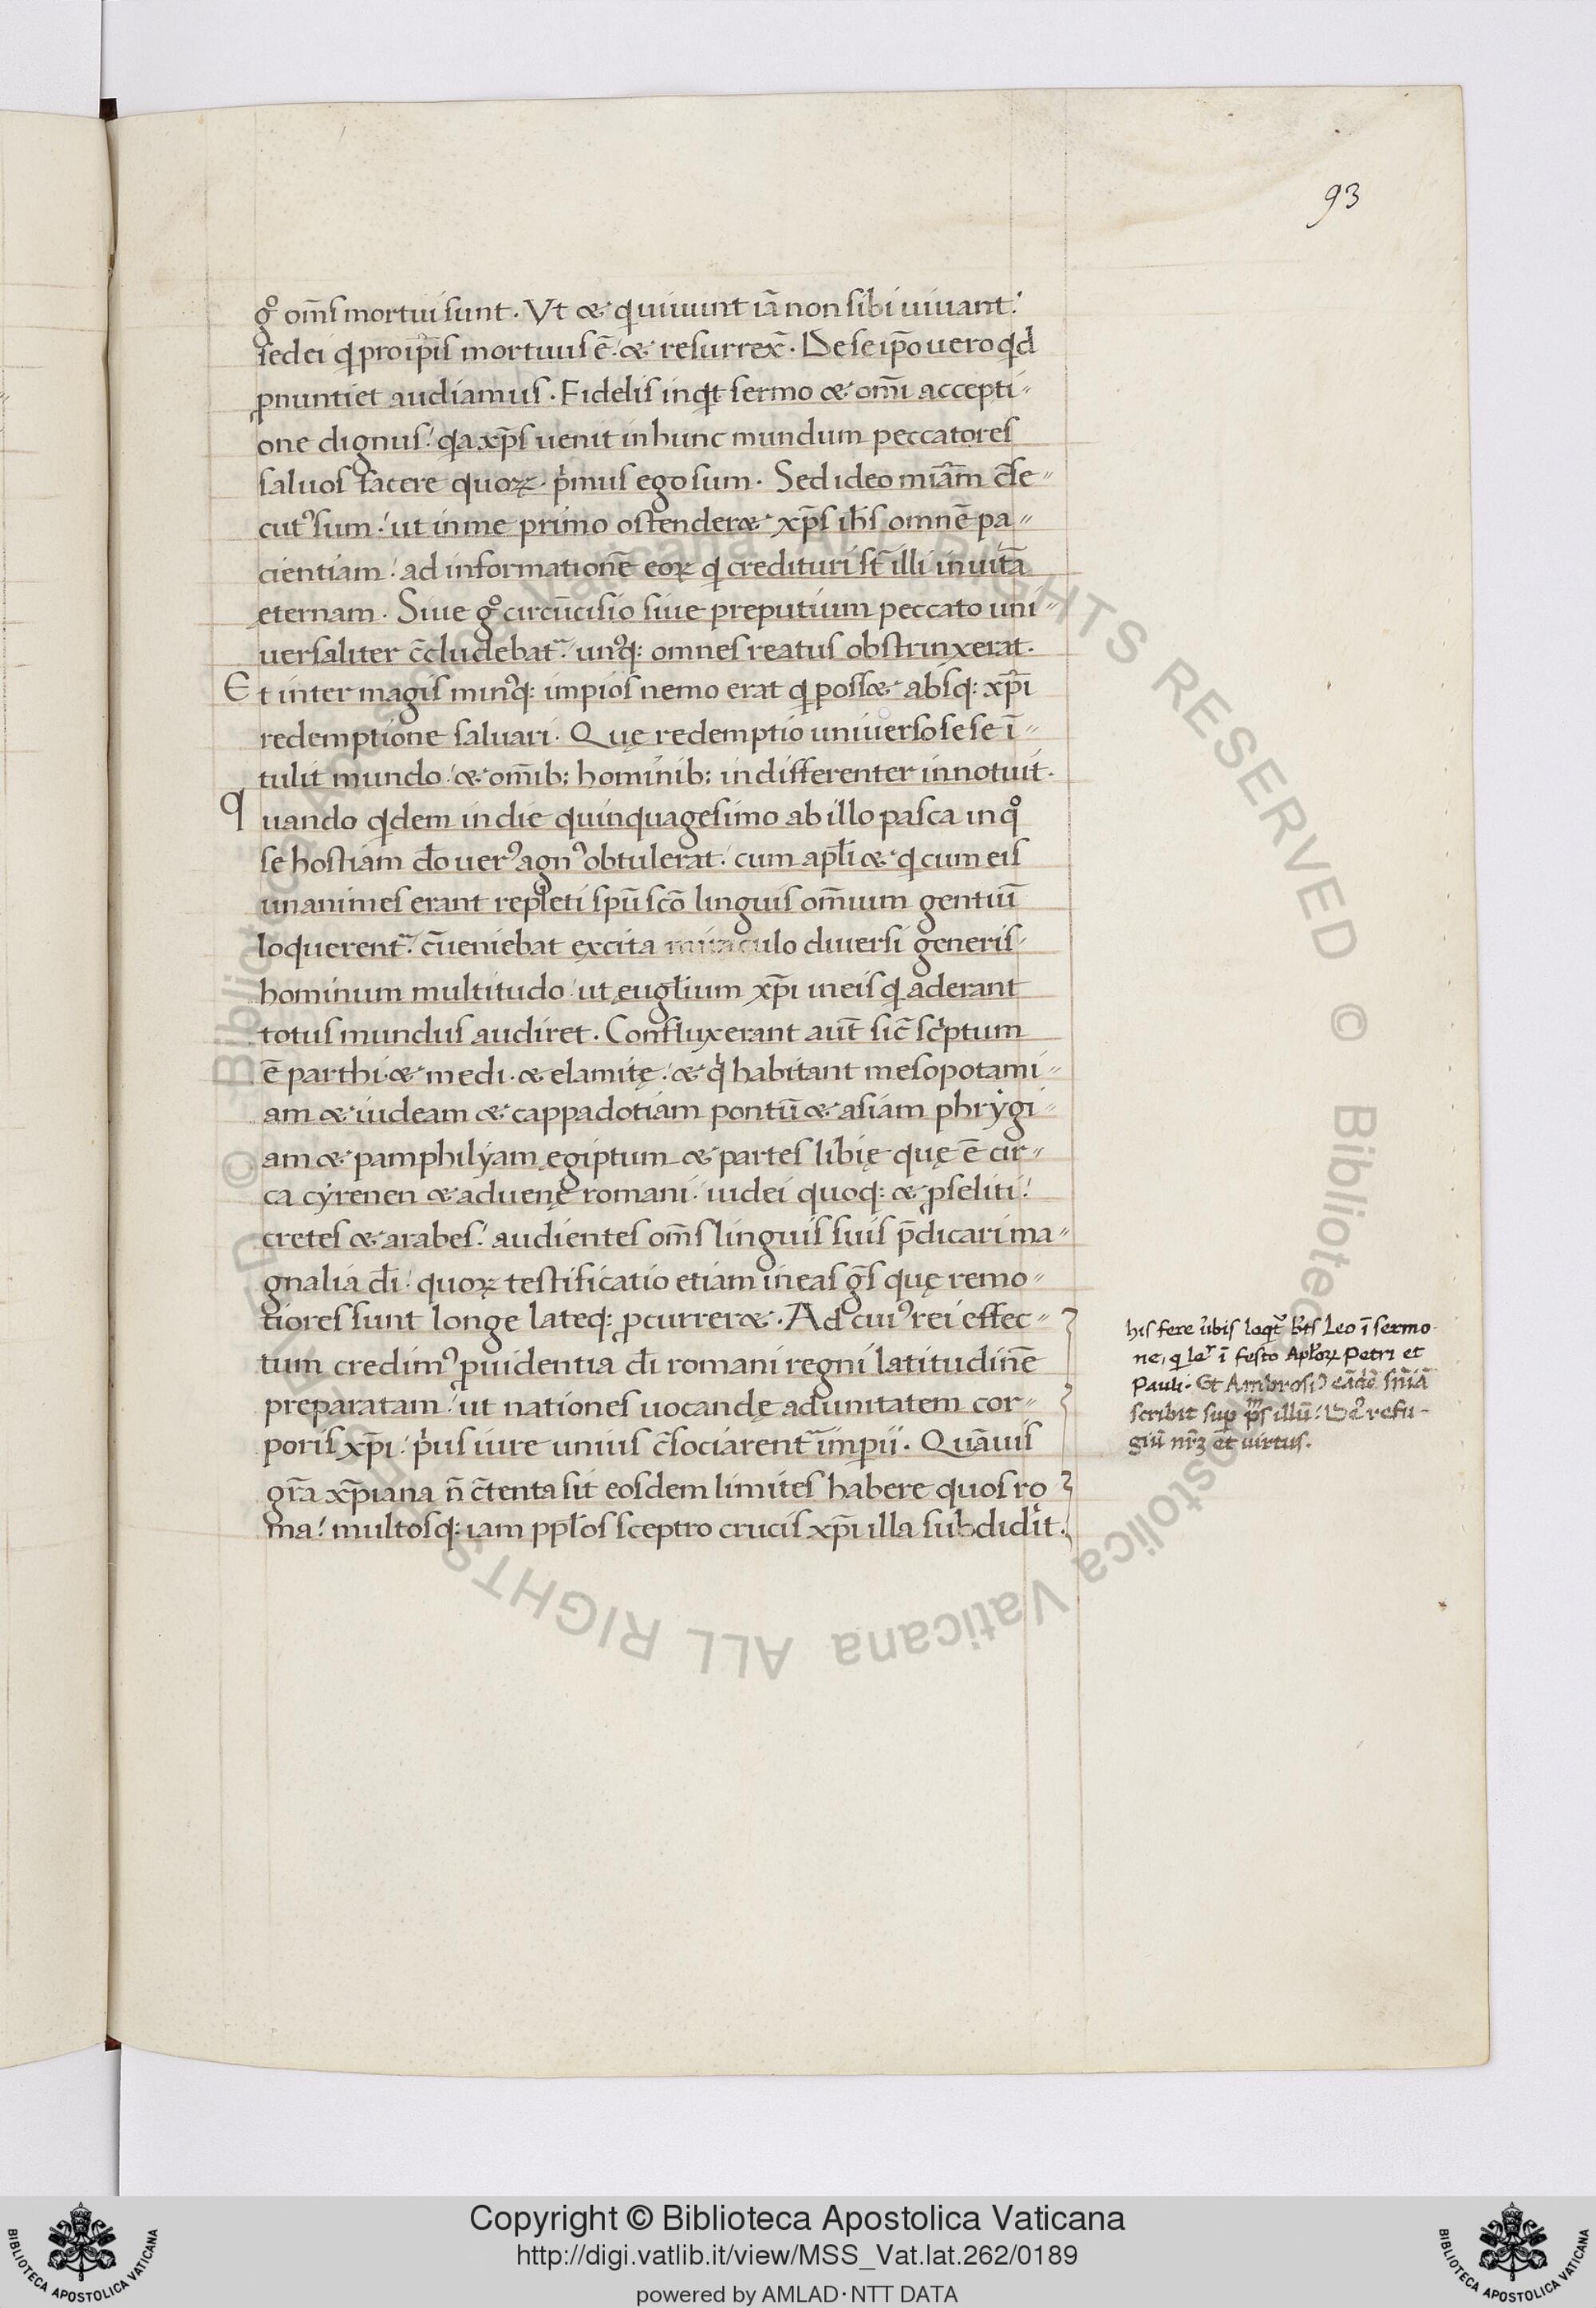 93
gͦ om̅s mortui sunt. Vt & q uiuunt ia̅ non sibi uiuant.
sed ei q pro ip̅is mortuus e̅. & resurrex̅. De se ip̅o uero qd
ꝓnuntiet audiamus. Fidelis inqt sermo & om̅i accepti-
one dignus. qa xp̅s uenit in hunc mundum peccatores
saluos facere quoꝝ pͥmus ego sum. Sed ideo mi̅am c̅se-
cutꝰ sum. ut in me primo ostender& xp̅s ih̅s omne̅ pa-
cientiam. ad informatione̅ eoꝝ q credituri st̅ illi in uita̅
eternam. Siue gͦ circu̅cisio siue preputium peccato uni-
uersaliter c̅cludebat᷑. unꝰq: omnes reatus obstrinxerat.
Et inter magis minꝰq: impios nemo erat q poss& absq: xp̅i
redemptione saluari. Quę redemptio uniuerso sese i̅-
tulit mundo. & om̅ib; hominib; indifferenter innotuit.
quando qdem in die quinquagesimo ab illo pasca in qͦ
se hostiam do̅ uerꝰ agnꝰ obtulerat. cum apl̅i & q cum eis
unanimes erant repleti spu̅ sco̅ linguis om̅ium gentiu̅
loquerent᷑. c̅ueniebat excita miraculo diuersi generis
hominum multitudo. ut eugl̅ium xp̅i in eis q aderant
totus mundus audiret. Confluxerant aut̅ sic̅ scͥptum
e̅ parthi. & medi. & elamitę. & qͥ habitant mesopotami-
am & iudeam & cappadotiam pontu̅ & asiam phrẏgi-
am & pamphilẏam ęgiptum & partes libię quę e̅ cir-
ca cẏrenen & aduenę romani. iudei quoq: & ꝓseliti.
cretes & arabes. audientes om̅s linguis suis p̅dicari ma-
gnalia di̅. quoꝝ testificatio etiam in eas g̅s quę remo-
tiores sunt longe lateq: ꝓcurrer&. Ad cuiꝰ rei effec-
tum credimꝰ ꝓuidentia di̅ romani regni latitudine̅
preparatam. ut nationes uocandę ad unitatem cor-
poris xp̅i. pͥus iure unius c̅sociarent᷑ imꝑii. Qua̅uis
gr̅a xp̅iana n̅ c̅tenta sit eosdem limites habere quos ro
ma. multosq: iam ppl̅os sceptro crucis xp̅i illa subdidit.
his fere u̅bis loqt᷑ bt̅s Leo i̅ sermo-
ne, q let᷑ i̅ festo Apl̅oꝝ Petri et
Pauli. Et Ambrosiꝰ ea̅de̅ sn̅ia̅
scribit suꝑ ps̅ illu̅. De᷒ refu-
giu̅ nr̅ꝫ et uirtus.
Copyright © Biblioteca Apostolica Vaticana
http://digi.vatlib.it/view/MSS_Vat.lat.262/0189
powered by AMLAD·NTT DATA
BIBLIOTECA APOSTOLICA VATICANA
BIBLIOTECA APOSTOLICA VATICANA
© Biblioteca Apostolica Vaticana ALL RIGHTS RESERVED © Biblioteca Apostolica Vaticana ALL RIGHTS RESERVED